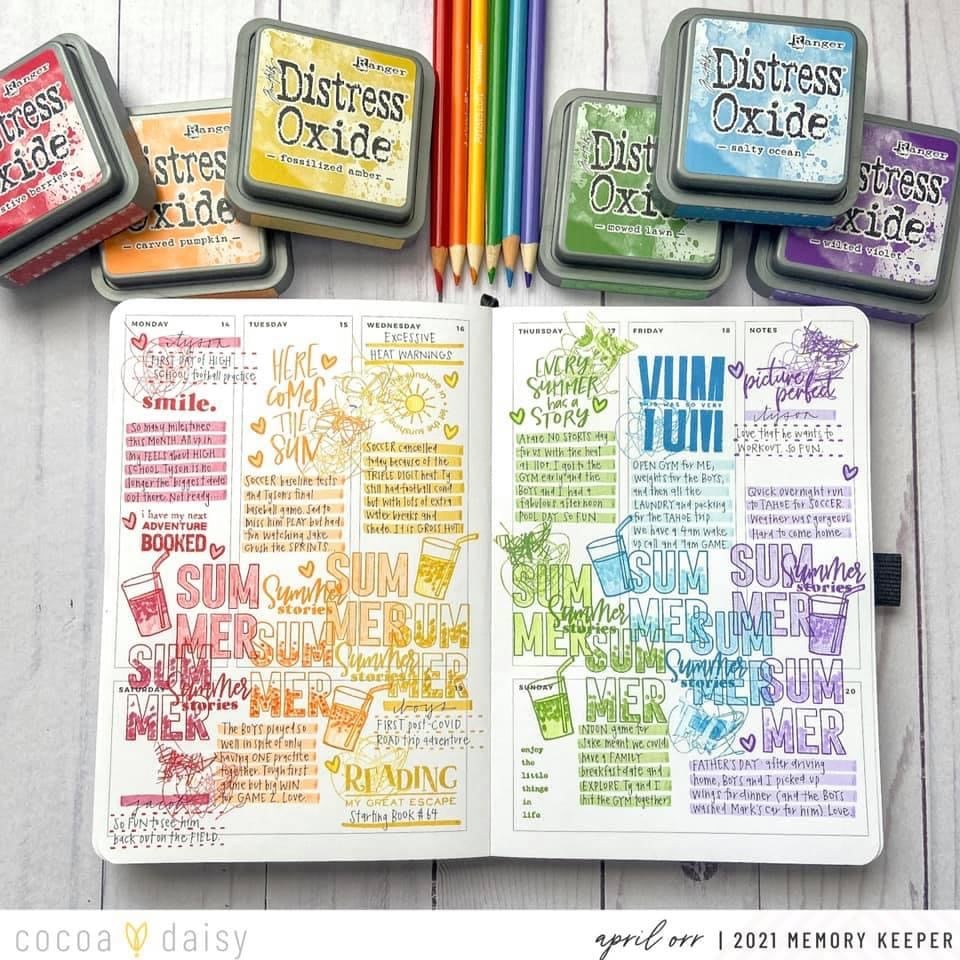 Ranger
Distress
Oxide
Ranger
Distress
Oxide
— carved pumpkin —
Ranger
Distress
Oxide
— fossilized amber —
Distress
Oxide
— mowed lawn —
Ranger
Distress
Oxide
— salty ocean —
Ranger
Distress
Oxide
— wilted violet —
MONDAY 14
tyson
FIRST DAY of HIGH
SCHOOL football practice
smile.
So many milestones
this MONTH. All up in
My FEELS about HIGH
SCHOOL. Tyson is no
longer the biggest dude
out there. Not ready...
i have my next
ADVENTURE
BOOKED
TUESDAY 15
HERE
COMES
THE
SUN
SOCCER baseline tests
and Tyson's final
baseball game. Sad to
miss him PLAY but had
fun watching Jake
crush the SPRINTS.
WEDNESDAY 16
EXCESSIVE
HEAT WARNINGS
SOCCER cancelled
today because of the
TRIPLE DIGIT heat. Ty
still had football cond
but with lots of extra
Water breaks and
shade. It is GROSS HOT!
SUM
MER
Summer
stories
SUM
MER
SUM
MER
SUM
MER
SUM
MER
Summer
stories
Summer
stories
SATURDAY 19
jacob
SO FUN to see him
back out on the FIELD.
The BOYS played so
well in spite of only
having ONE practice
together. Tough first
game but big WIN
for GAME 2. Love.
boys
FIRST post-COVID
ROAD trip adventure
READING
MY GREAT ESCAPE
Starting Book #64
THURSDAY 17
EVERY
SUMMER
has a
STORY
A rare NO SPORTS day
for us with the heat
at 110+. I got to the
GYM early and the
BOYS and I had a
fabulous afternoon
POOL DAY SO FUN
FRIDAY 18
YUM
THIS WAS SO VERY
YUM
OPEN GYM for ME,
weights for the BOYS,
and then all the
LAUNDRY and packing
for the TAHOE trip.
We have a 4am wake
up call and 9am GAME
NOTES
picture
perfect
tyson
Love that he wants to
WORKOUT. SO FUN.
Quick overnight run
to TAHOE for SOCCER.
Weather was gorgeous
Hard to come home
SUM
MER
Summer
stories
SUM
MER
SUM
MER
SUM
MER
SUM
MER
Summer
stories
Summer
stories
SUM
MER
SUNDAY 20
enjoy
the
little
things
in
life
NOON game for
Jake meant we could
have a FAMILY
breakfast date and
EXPLORE. Ty and I
hit the GYM together
FATHER'S DAY after driving
home, BOYS and I picked up
wings for dinner (and the BOYS
washed Mark's car for him). Love
cocoa daisy
april orr | 2021 MEMORY KEEPER